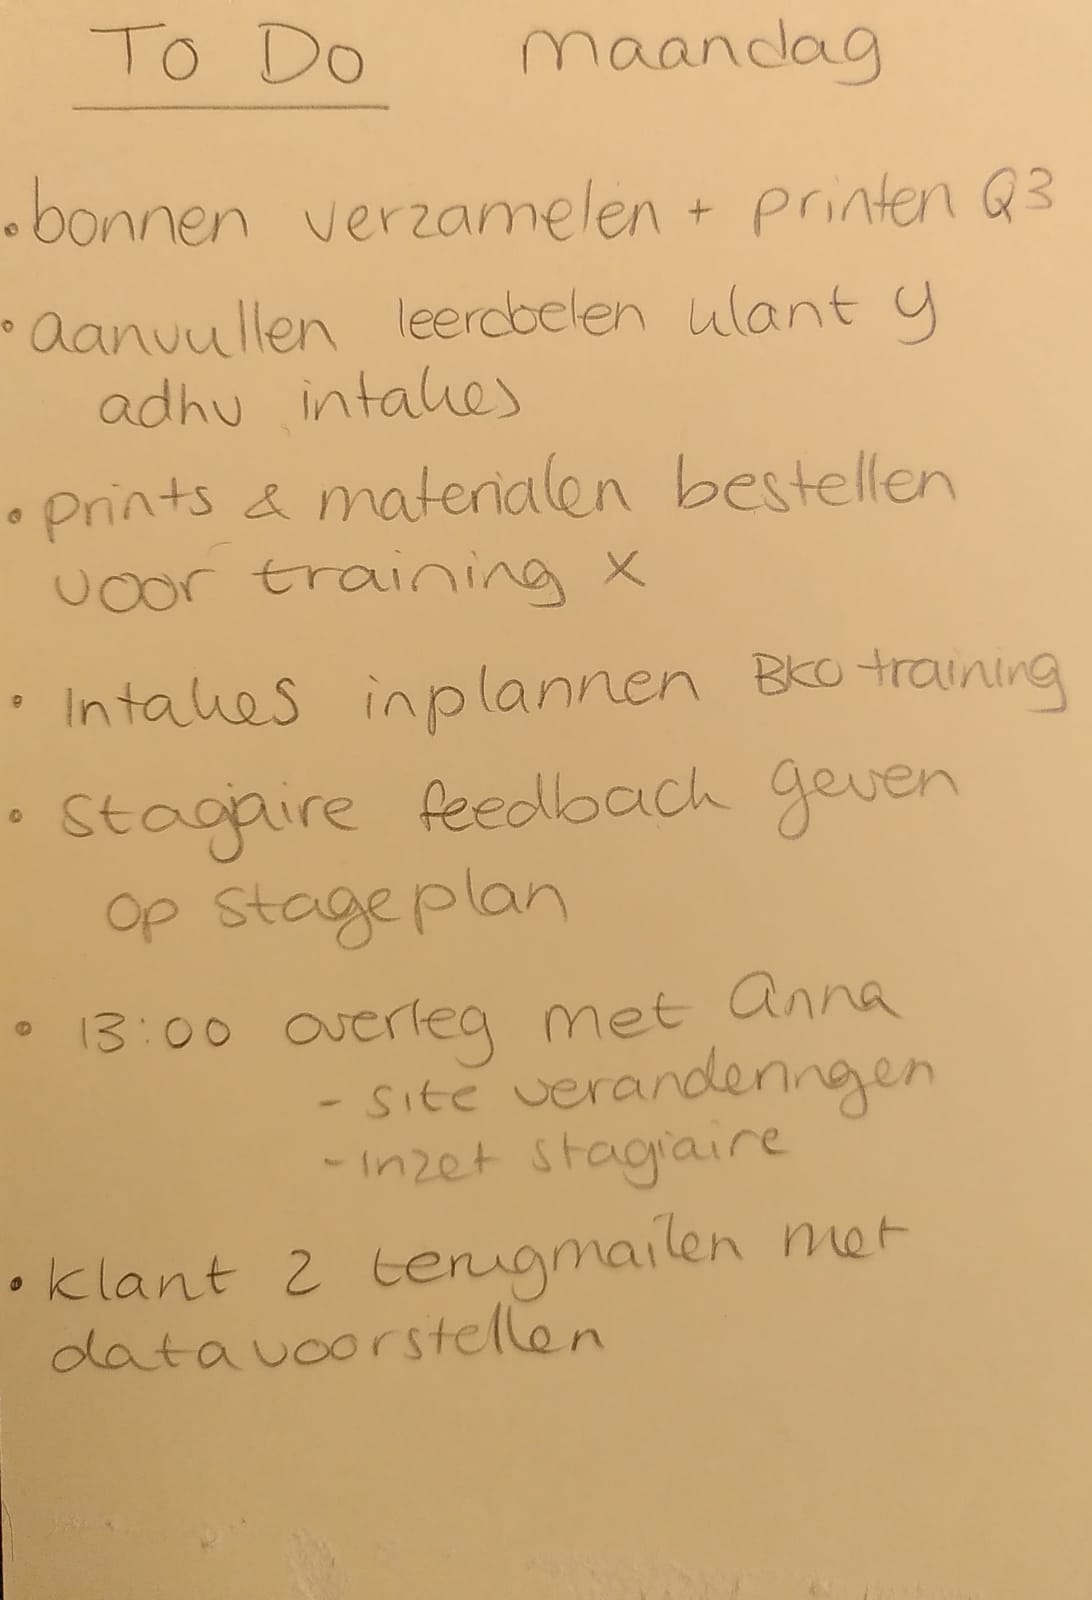 To Do maandag
• bonnen verzamelen + printen Q3
• aanvullen leerdoelen klant y
adhv intakes
• prints & materialen bestellen
voor training x
• Intakes inplannen BKO training
• Stagiaire feedback geven
op stageplan
• 13:00 overleg met Anna
- site veranderingen
- inzet stagiaire
• klant 2 terugmailen met
datavoorstellen